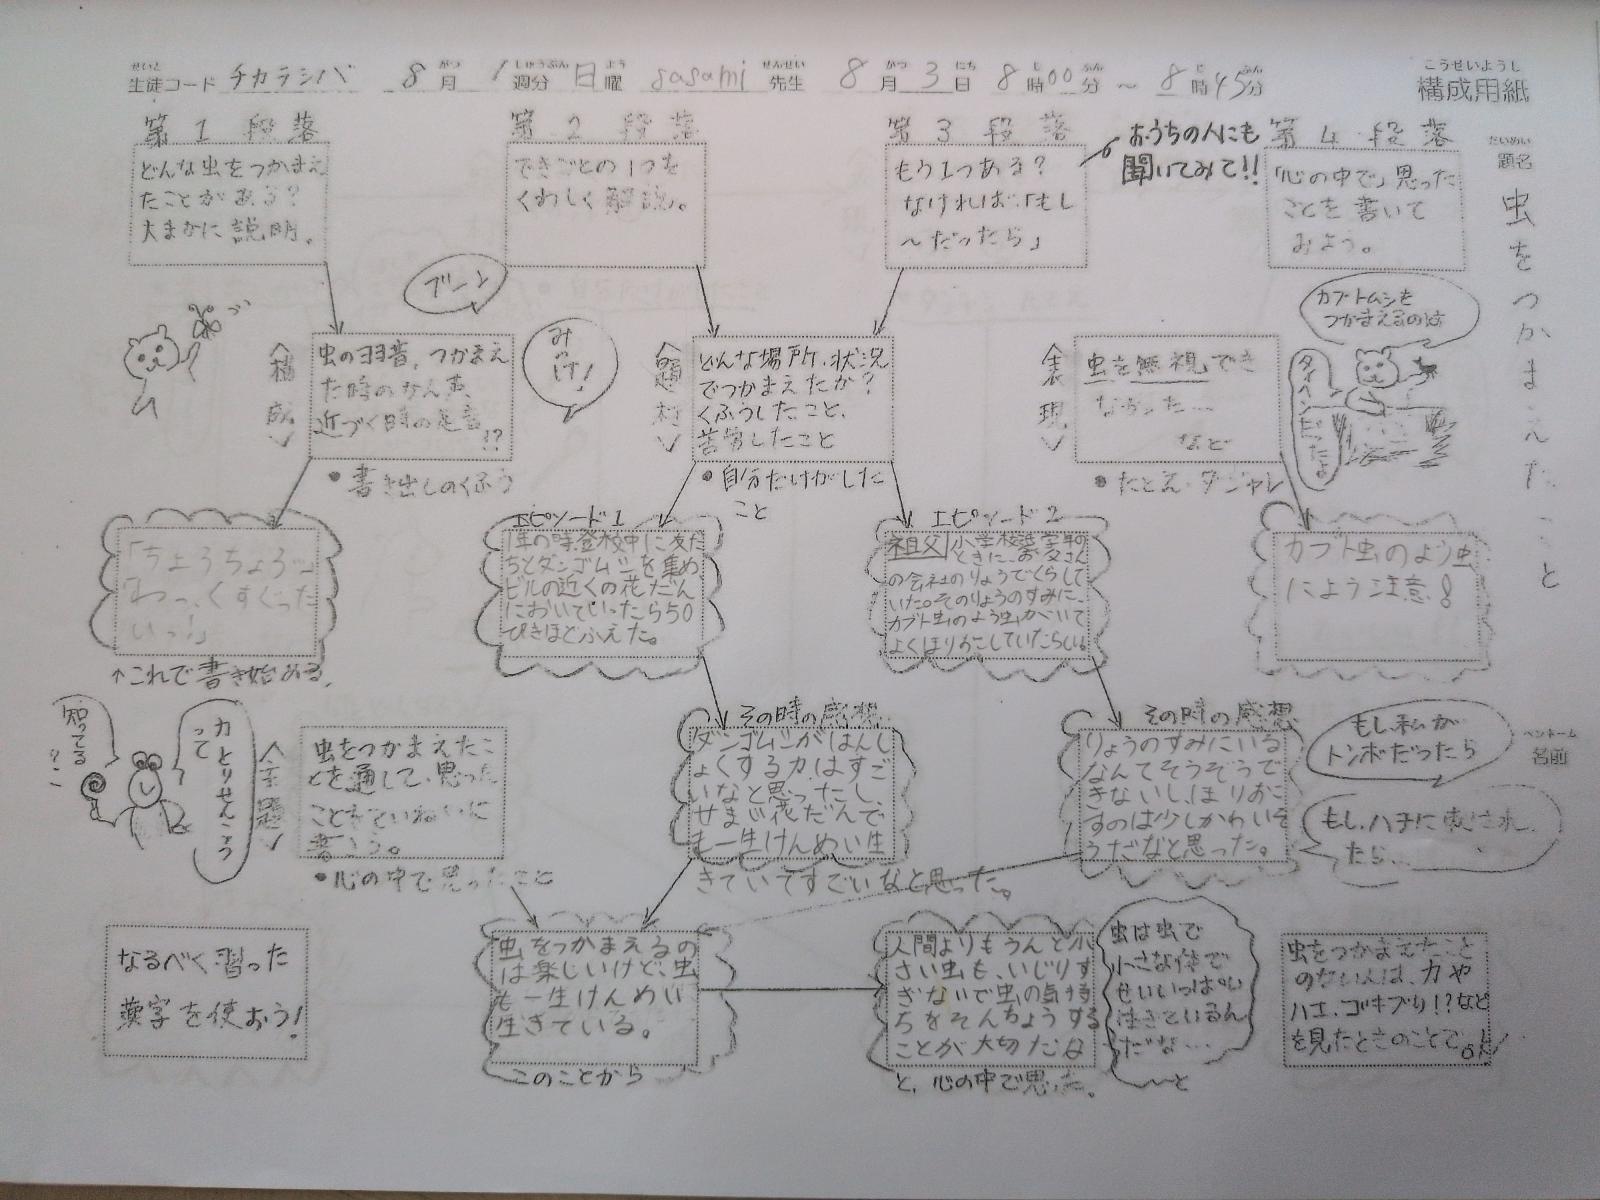 生徒コード チカラシバ 8月 1週分 日曜 sasami 先生 8月 3日 8時00分 ～ 8時45分
構成用紙
題名 虫をつかまえたこと
名前
第1段落
どんな虫をつかまえ
たことがある?
大まかに説明。
第2段落
できごとの1つを
くわしく解説。
第3段落
もう1つある?
なければ、「もし
～だったら」
おうちの人にも
聞いてみて!!
第4段落
「心の中で」思った
ことを書いて
みよう。
ブーン
みっけ!
〈構成〉
虫の羽音、つかまえ
た時のかん声、
近づく時の足音!?
●書き出しのくふう
〈題材〉
どんな場所、状況
でつかまえたか?
くふうしたこと、
苦労したこと
●自分だけがした
こと
〈表現〉
虫を無視でき
なかった…
など
●たとえ・ダジャレ
カブトムシを
つかまえるのは
タイヘンだったよ
「ちょうちょう…」
「わっ、くすぐった
いっ!」
↑これで書き始める。
エピソード1
1年の時、登校中に友だ
ちとダンゴムシを集め、
ビルの近くの花だん
においていったら50
ぴきほどふえた。
エピソード2
祖父 小学校低学年の
ときに、お父さん
の会社のりょうでくらして
いた。そのりょうのすみに、
カブト虫のよう虫がいて
よくほりおこしていたらしい。
カブト虫のよう虫
によう注意!
知ってる?
カとりせんこう
って
〈主題〉
虫をつかまえたこ
とを通して、思った
ことをていねいに
書こう。
●心の中で思ったこと
その時の感想
ダンゴムシがはんし
ょくする力はすご
いなと思ったし、
せまい花だんで
も一生けんめい生
きていてすごいなと思った。
その時の感想
りょうのすみにいる
なんてそうぞうで
きないし、ほりおこ
すのは少しかわいそ
うだなと思った。
もし私が
トンボだったら
もし、ハチに刺され
たら…
なるべく習った
漢字を使おう!
虫をつかまえるの
は楽しいけど、虫
も一生けんめい
生きている。
このことから
人間よりもうんと小
さい虫も、いじりす
ぎないで虫の気持
ちをそんちょうする
ことが大切だな
と、心の中で思った。
虫は虫で
小さな体で
せいいっぱい
生きているん
だな…
と
虫をつかまえたこと
のない人は、カや
ハエ、ゴキブリ!?など
を見たときのことでOK!